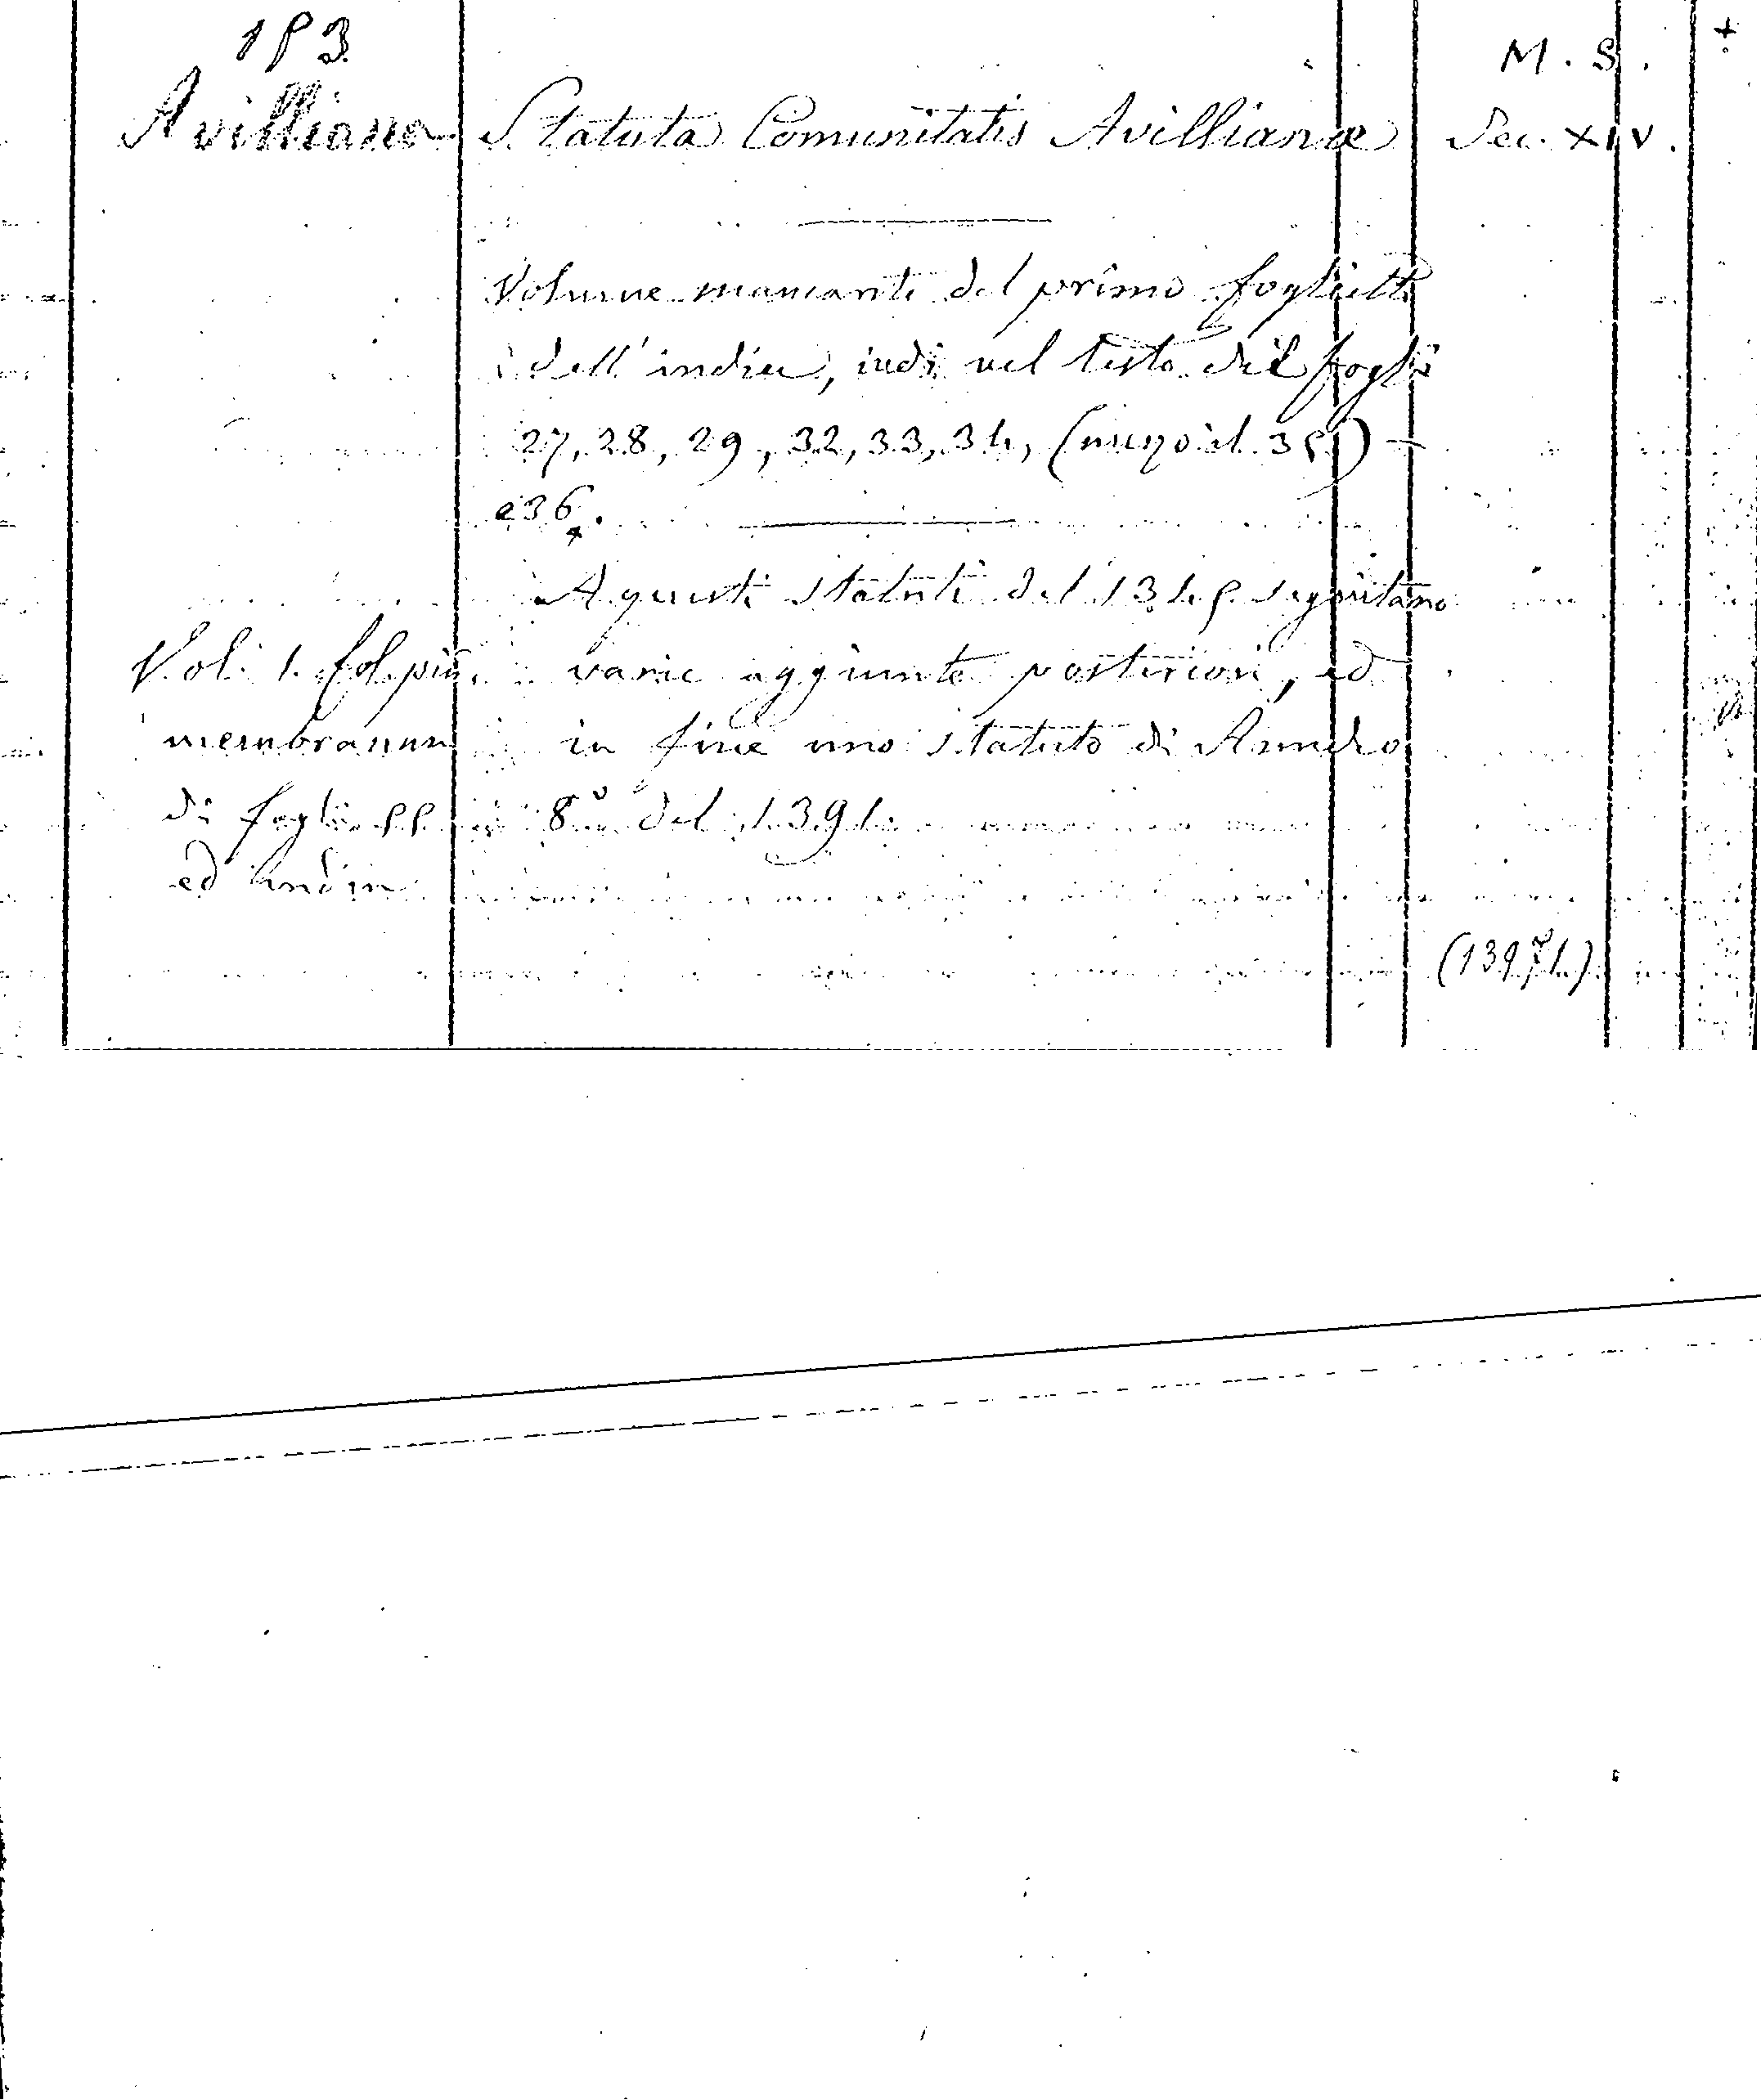 153
M. S.
Avilliana
Statuta Comunitatis Avillianæ
Sec. XIV.
Volume mancante del primo foglietto
dell'indice, indi nel testo dei fogli
27, 28, 29, 32, 33, 34, (mezzo il 35)
e 36.
A questi statuti del 1345 seguitano
varie aggiunte posteriori, ed
in fine uno statuto di Amedeo
8º del
Vol. 1. fol. pic.
membranac
di fogli 55
ed